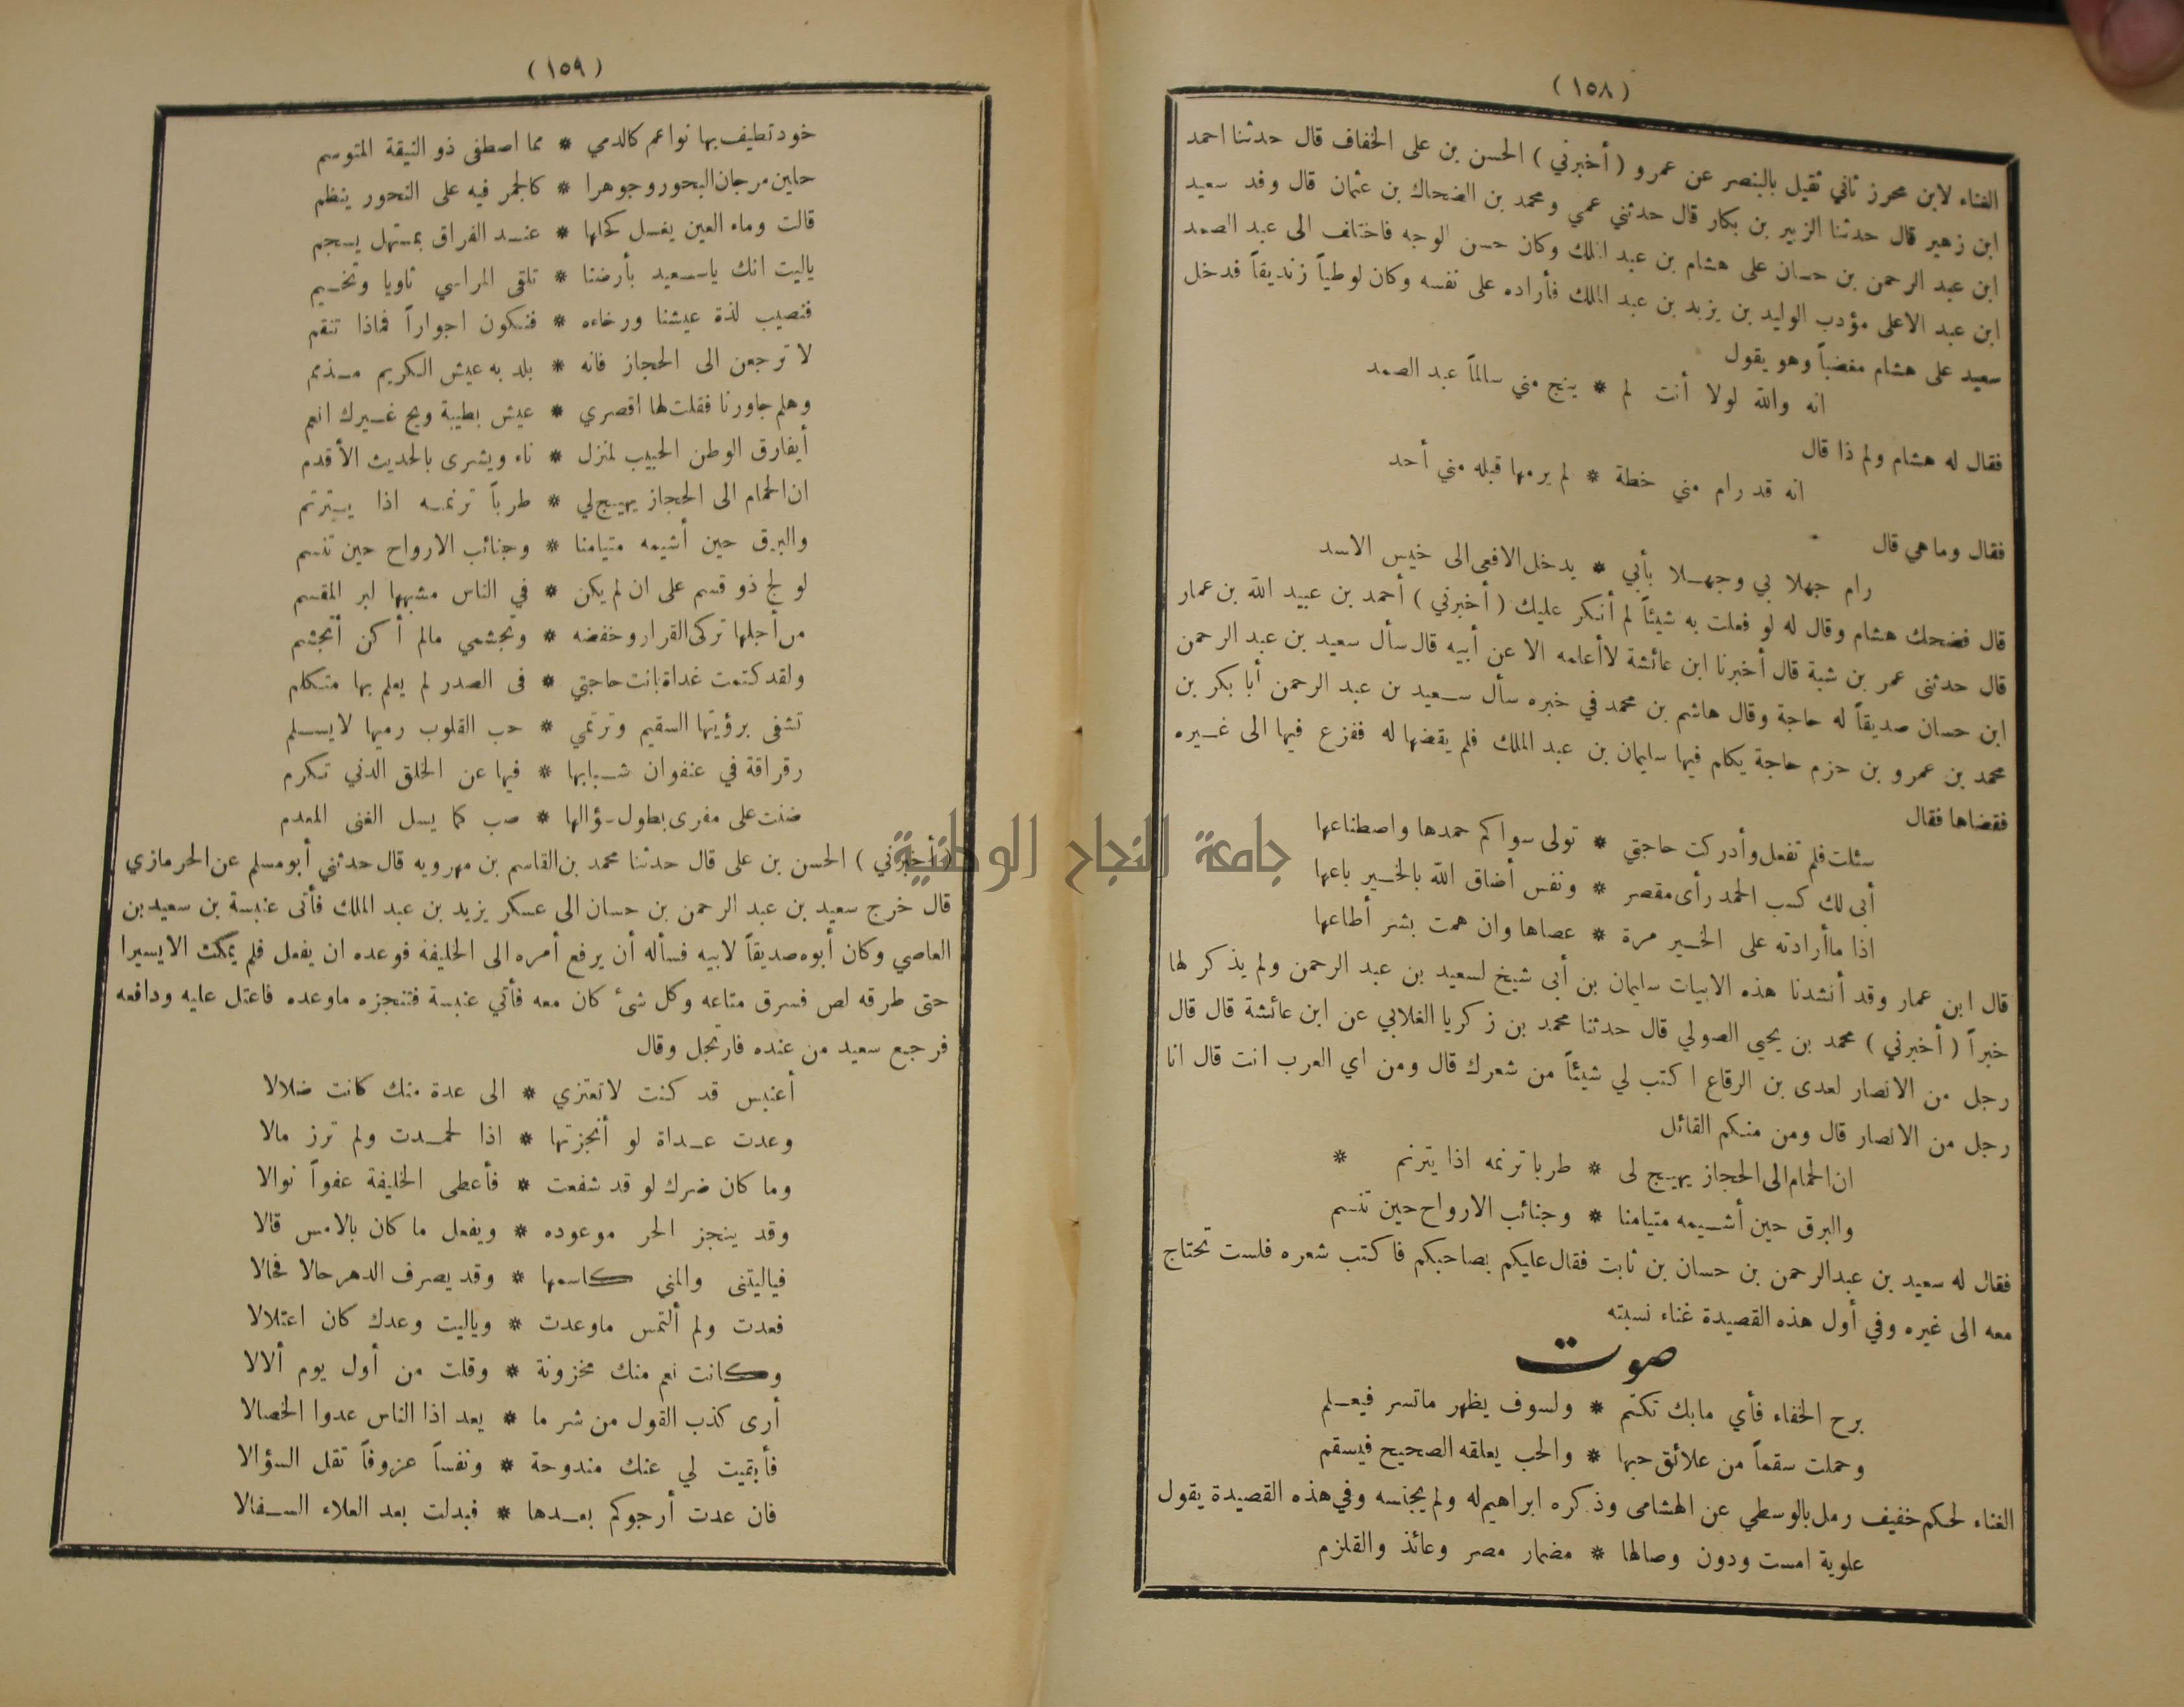 (١٥٨)
الغناء لابن محرز ثاني ثقيل بالبنصر عن عمرو ( أخبرني ) الحسن بن على الخفاف قال حدثنا احمد
ابن زهير قال حدثنا الزبير بن بكار قال حدثني عمي ومحمد بن الضحاك بن عثمان قال وفد سعيد
ابن عبد الرحمن بن حسان على هشام بن عبد الملك وكان حسن الوجه فاختلف الى عبد الصمد
ابن عبد الاعلى مؤدب الوليد بن يزيد بن عبد الملك فأراده على نفسه وكان لوطياً زنديقاً فدخل
سعيد على هشام مغضباً وهو يقول
انه والله لولا أنت لم * ينج مني سالماً عبد الصمد
فقال له هشام ولم ذا قال
انه قد رام مني خطة * لم يرمها قبله مني أحد
فقال وما هي قال
رام جهلا بي وجهلا بأبي * يدخل الافعى الى خيس الاسد
قال فضحك هشام وقال له لو فعلت به شيئاً لم أنكر عليك ( أخبرني ) أحمد بن عبيد الله بن عمار
قال حدثنى عمر بن شبة قال أخبرنا ابن عائشة لا أعلمه الا عن أبيه قال سأل سعيد بن عبد الرحمن
ابن حسان صديقاً له حاجة وقال هاشم بن محمد في خبره سأل سعيد بن عبد الرحمن أبا بكر بن
محمد بن عمرو بن حزم حاجة يكلم فيها سليمان بن عبد الملك فلم يقضها له ففزع فيها الى غيره
فقضاها فقال
سئلت فلم تفعل وأدركت حاجتي * تولى سواكم حمدها واصطناعها
أبى لك كسب الحمد رأى مقصر * ونفس أضاق الله بالخير باعها
اذا ما أرادته على الخير مرة * عصاها وان همت بشر أطاعها
قال ابن عمار وقد أنشدنا هذه الابيات سليمان بن أبى شيخ لسعيد بن عبد الرحمن ولم يذكر لها
خبراً ( أخبرني ) محمد بن يحيى الصولي قال حدثنا محمد بن زكريا الغلابي عن ابن عائشة قال قال
رجل من الانصار لعدى بن الرقاع اكتب لي شيئاً من شعرك قال ومن اي العرب انت قال انا
رجل من الانصار قال ومن منكم القائل
ان الحمام الى الحجاز يهيج لى * طربا ترنمه اذا يترنم *
والبرق حين أشيمه متيامنا * وجنائب الارواح حين تنسم
فقال له سعيد بن عبدالرحمن بن حسان بن ثابت فقال عليكم بصاحبكم فاكتب شعره فلست تحتاج
معه الى غيره وفي أول هذه القصيدة غناء نسبته
صوت
برح الخفاء فأي مابك تكتم * ولسوف يظهر ماتسر فيعلم
وحملت سقماً من علائق حبها * والحب يعلقه الصحيح فيسقم
الغناء لحكم خفيف رمل بالوسطي عن الهشامى وذكره ابراهيم له ولم يجنسه وفي هذه القصيدة يقول
علوية امست ودون وصالها * مضمار مصر وعائذ والقلزم
(١٥٩)
خود تطيف بها نواعم كالدمي * مما اصطفى ذو النيقة المتوسم
حلين مرجان البحور وجوهرا * كالجمر فيه على النحور ينظم
قالت وماء العين يغسل كحلها * عند الفراق بمستهل يسجم
ياليت انك ياسعيد بأرضنا * تلقى المراسي ثاويا وتخيم
فنصيب لذة عيشنا ورخاءه * فنكون اجواراً فماذا تنقم
لا ترجعن الى الحجاز فانه * بلد به عيش الكريم مذمم
وهلم جاورنا فقلت لها اقصري * عيش بطيبة ويح غيرك انعم
أيفارق الوطن الحبيب لمنزل * ناء ويشرى بالحديث الأقدم
ان الحمام الى الحجاز يهيج لي * طرباً ترنمه اذا يترنم
والبرق حين أشيمه متيامنا * وجنائب الارواح حين تنسم
لو لج ذو قسم على ان لم يكن * في الناس مشبهها لبر المقسم
من أجلها تركى القرار وخفضه * وتجشمي مالم أكن أتجشم
ولقد كتمت غداة بانت حاجتي * فى الصدر لم يعلم بها متكلم
تشفى برؤيتها السقيم وترتمي * حب القلوب رميها لايسلم
رقراقة في عنفوان شبابها * فيها عن الخلق الدني تكرم
ضنت على مغرى بطول سؤالها * صب كما يسل الغنى المعدم
( أخبرني ) الحسن بن على قال حدثنا محمد بن القاسم بن مهرويه قال حدثني أبو مسلم عن الحرمازي
قال خرج سعيد بن عبد الرحمن بن حسان الى عسكر يزيد بن عبد الملك فأتى عنبسة بن سعيد بن
العاصي وكان أبوه صديقاً لابيه فسأله أن يرفع أمره الى الخليفة فوعده ان يفعل فلم يمكث الايسيرا
حتى طرقه لص فسرق متاعه وكل شئ كان معه فأتي عنبسة فتنجزه ماوعده فاعتل عليه ودافعه
فرجع سعيد من عنده فارتجل وقال
أعنبس قد كنت لاتعتزي * الى عدة منك كانت ضلالا
وعدت عداة لو أنجزتها * اذا لحمدت ولم ترز مالا
وما كان ضرك لو قد شفعت * فأعطى الخليفة عفواً نوالا
وقد ينجز الحر موعوده * ويفعل ما كان بالامس قالا
فياليتنى والمني كاسمها * وقد يصرف الدهر حالا فحالا
فعدت ولم ألتمس ماوعدت * وياليت وعدك كان اعتلالا
وكانت نعم منك مخزونة * وقلت من أول يوم ألالا
أرى كذب القول من شر ما * يعد اذا الناس عدوا الخصالا
فأبقيت لي عنك مندوحة * ونفساً عزوفاً تقل السؤالا
فان عدت أرجوكم بعدها * فبدلت بعد العلاء السفالا
جامعة النجاح الوطنية